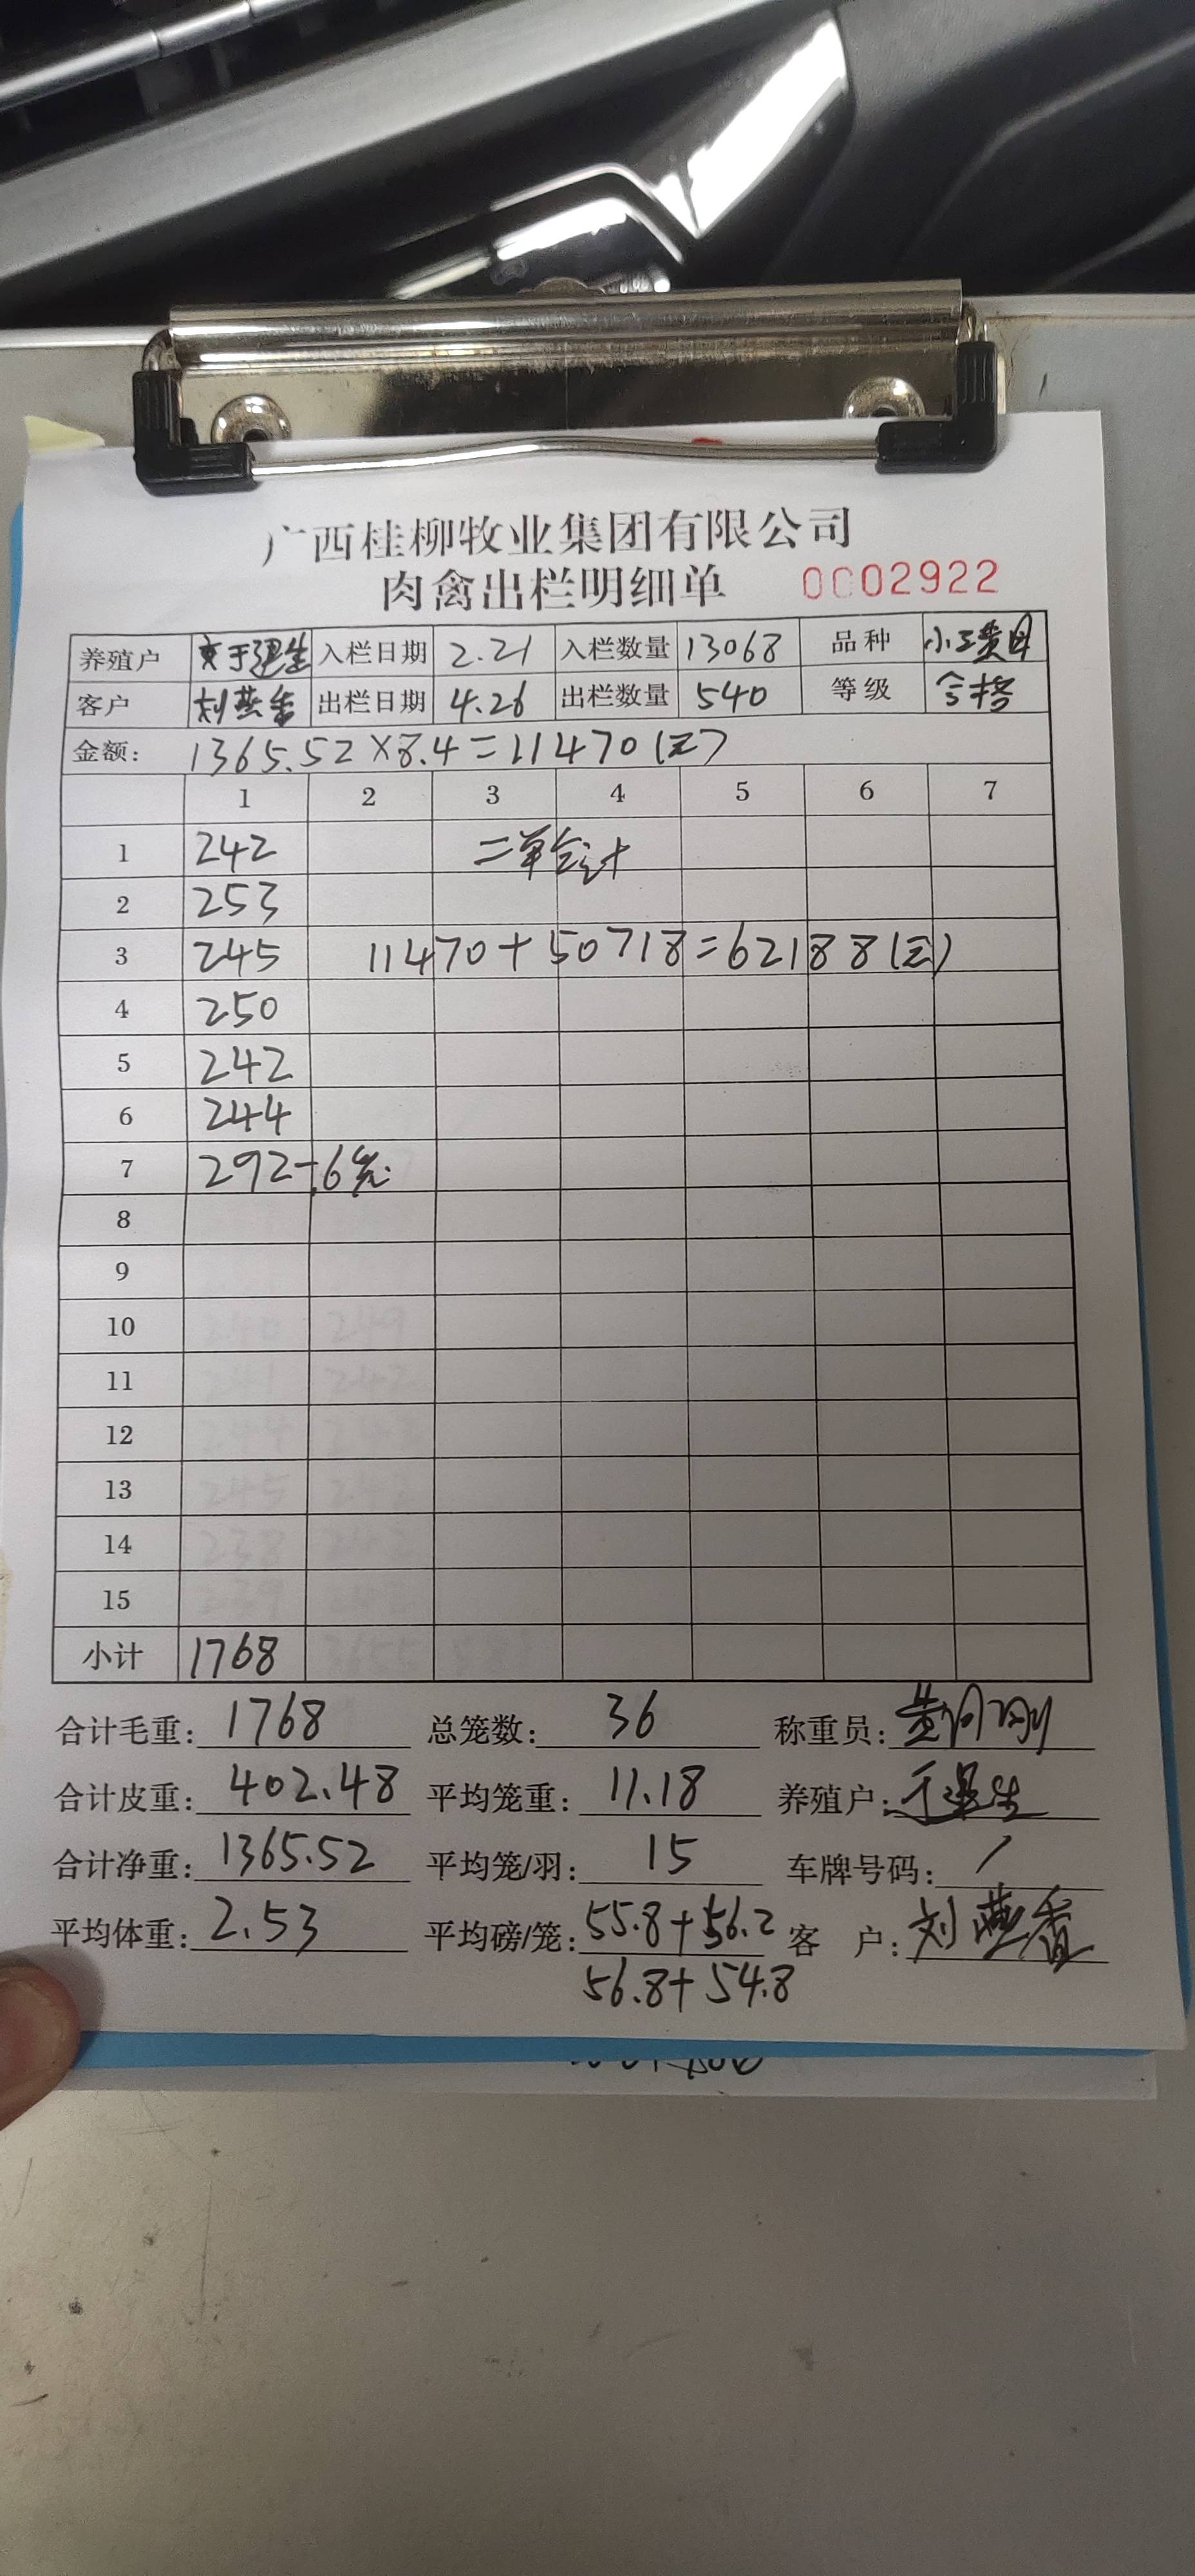 广西桂柳牧业集团有限公司
肉禽出栏明细单 0002922
养殖户 入栏日期 2.21 入栏数量 13068 品种
客户 刘燕香 出栏日期 4.26 出栏数量 540 等级 合格
金额: 1365.52×8.4=11470(元)
1 2 3 4 5 6 7
1 242 二单合计
2 253
3 245 11470+50718=62188(元)
4 250
5 242
6 244
7 292-6笼
8
9
10 240 249
11 241 242
12 244
13 245
14 238
15 239
小计 1768
合计毛重: 1768 总笼数: 36 称重员:
合计皮重: 402.48 平均笼重: 11.18 养殖户:
合计净重: 1365.52 平均笼/羽: 15 车牌号码: /
平均体重: 2.53 平均磅/笼: 55.8+56.2 客 户: 刘燕香
56.8+54.8